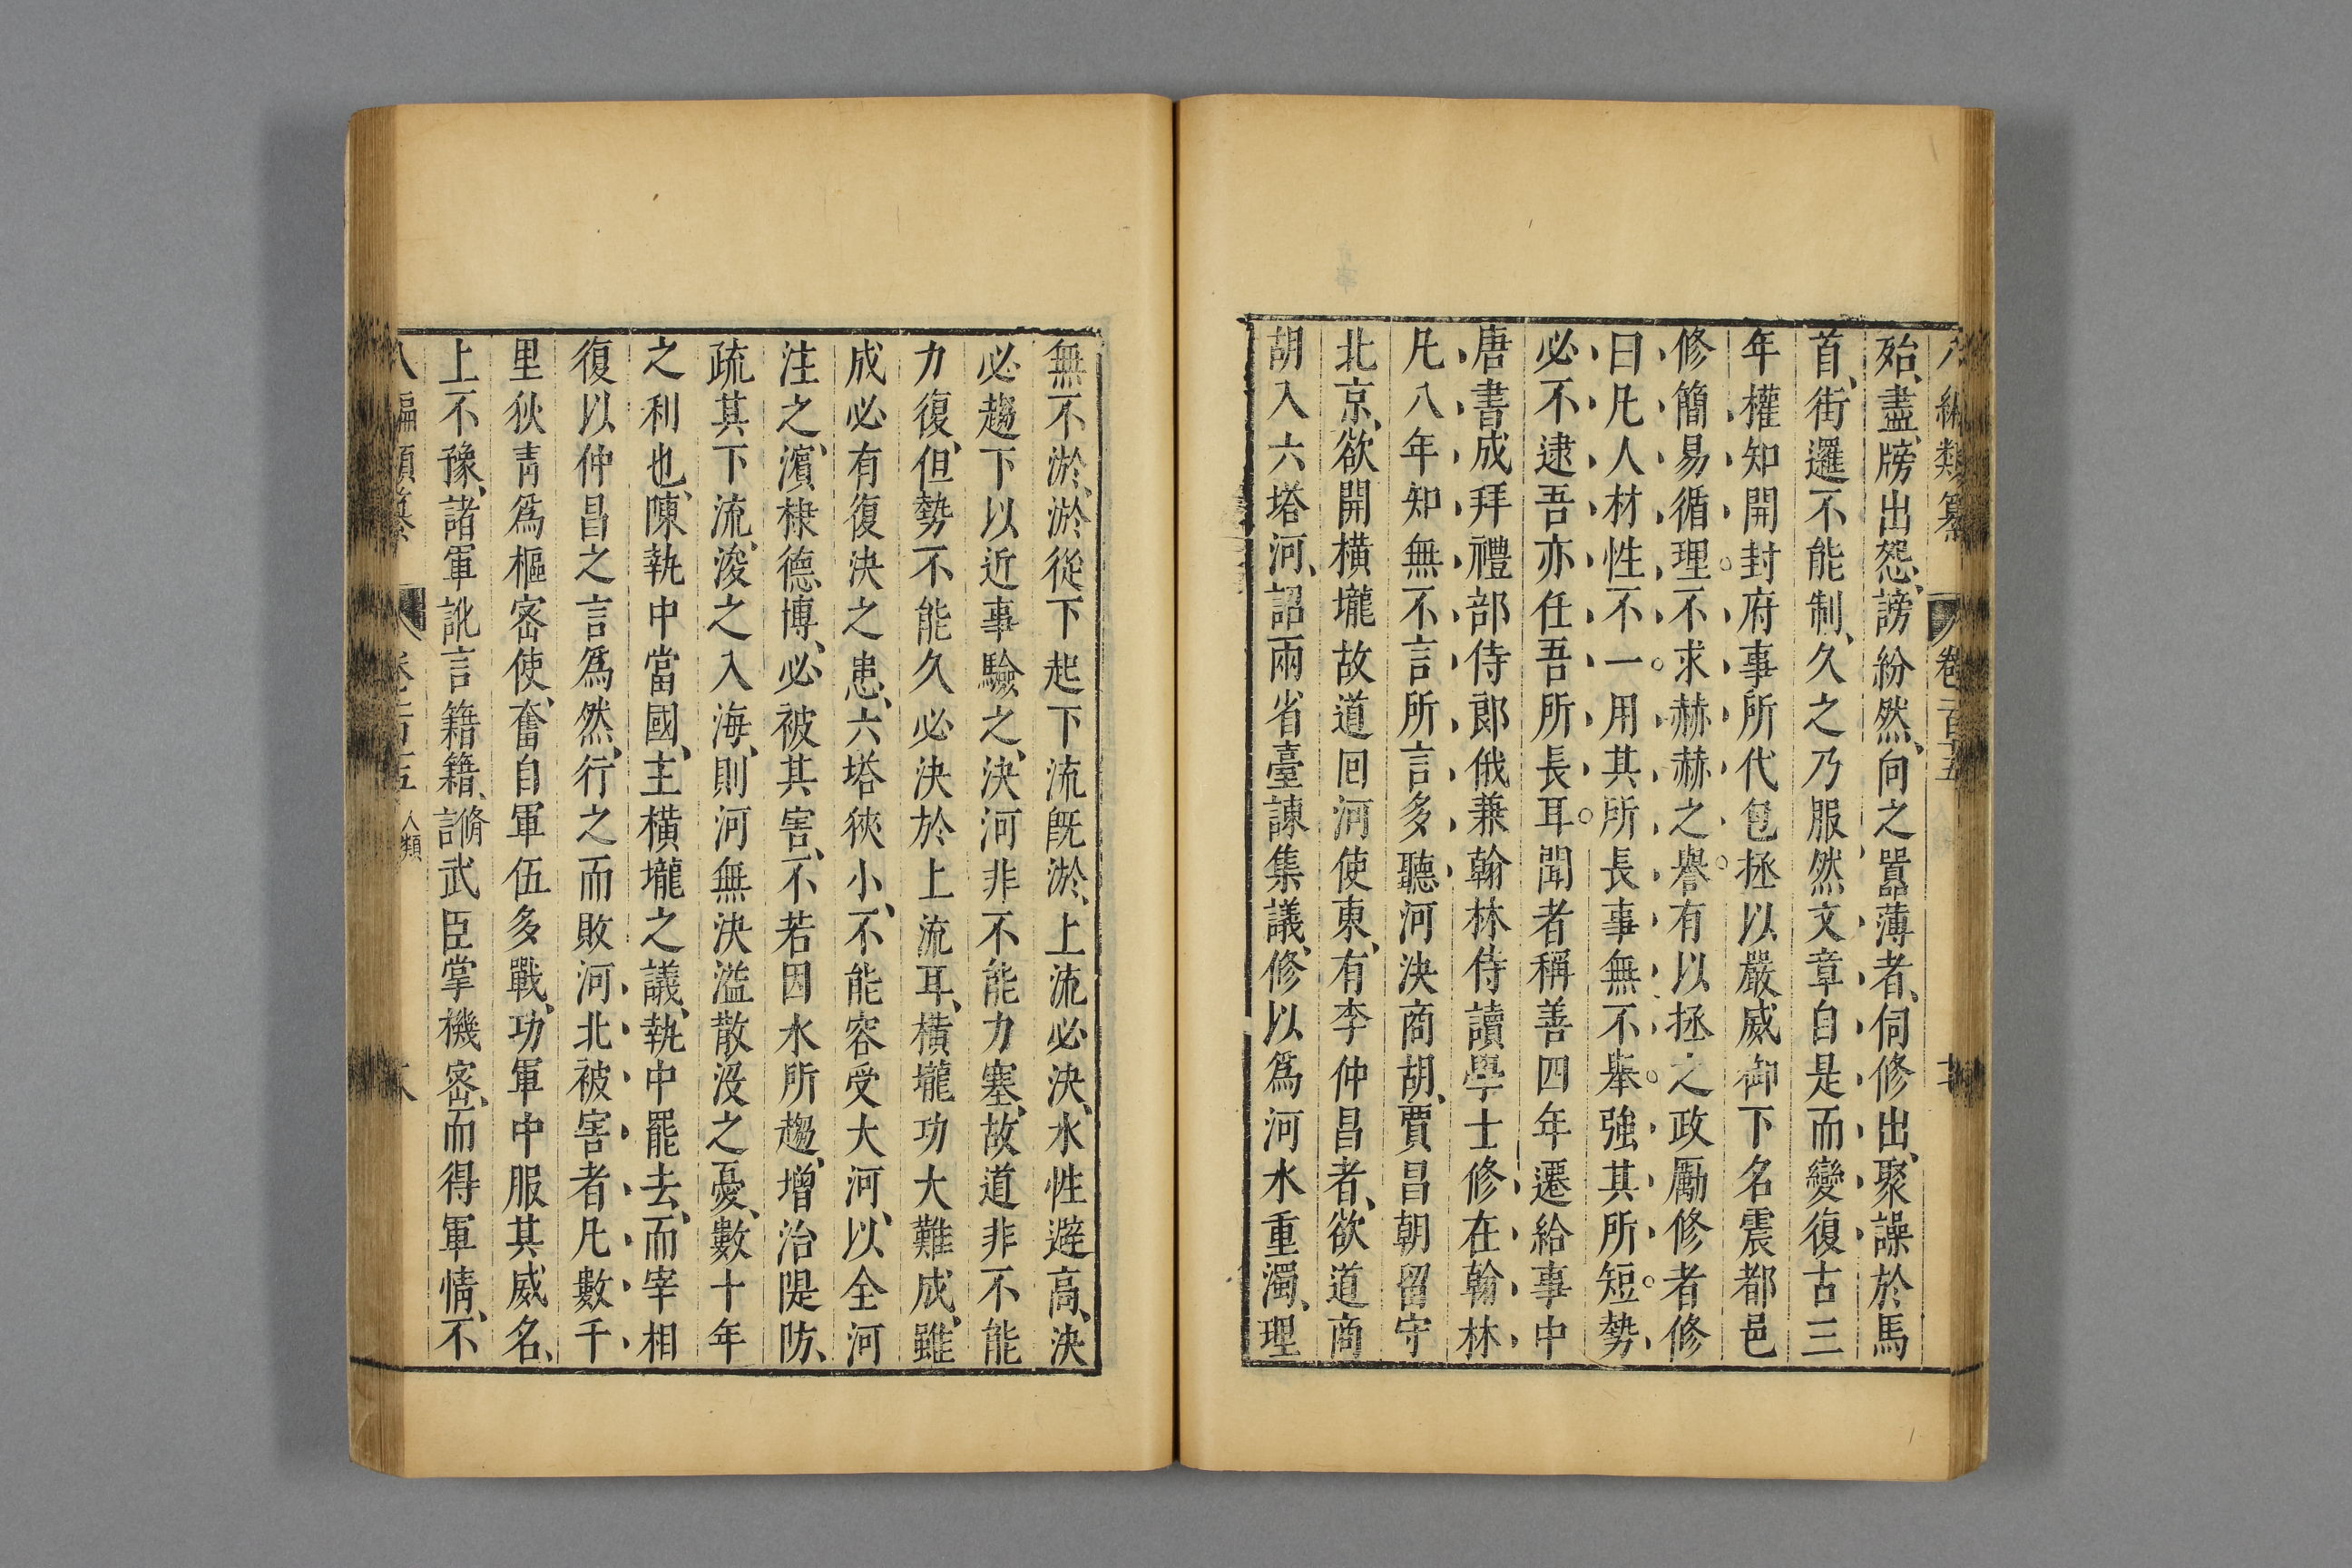 編類纂 卷一百五
殆盡、牓出怨、謗紛然、向之囂薄者、伺修出、聚譟於馬
首、街邏不能制、久之乃服然文章自是而變復古三
年權知開封府事所代包拯以嚴威御下名震都邑
修簡易循理。不求赫赫之譽。有以拯之政勵修者修
曰凡人材性不一。用其所長事無不舉。強其所短。勢
必不逮吾亦任吾所長耳。聞者稱善四年遷給事中
唐書成拜禮部侍郎俄兼翰林侍讀學士修在翰林
凡八年知無不言所言多聽河決商胡、賈昌朝留守
北京、欲開橫壠故道回河使東、有李仲昌者、欲道商
胡入六塔河、詔兩省臺諫集議、修以爲河水重濁、理
無不淤、淤從下起下流旣淤、上流必決、水性避高、決
必趨下以近事驗之、決河非不能力塞、故道非不能
力復、但勢不能久必決於上流耳、橫壠功大難成、雖
成必有復決之患、六塔狹小、不能容受大河、以全河
注之、濱棣德博、必被其害、不若因水所趨、增治隄防、
疏其下流、浚之入海、則河無決溢散没之憂、數十年
之利也、陳執中當國、主橫壠之議、執中罷去、而宰相
復以仲昌之言爲然、行之而敗河北被害者凡數千
里狄靑爲樞密使、奮自軍伍多戰、功軍中服其威名、
上不豫、諸軍訛言籍籍、諝武臣掌機密、而得軍情、不
八編類纂 卷一百五 人類